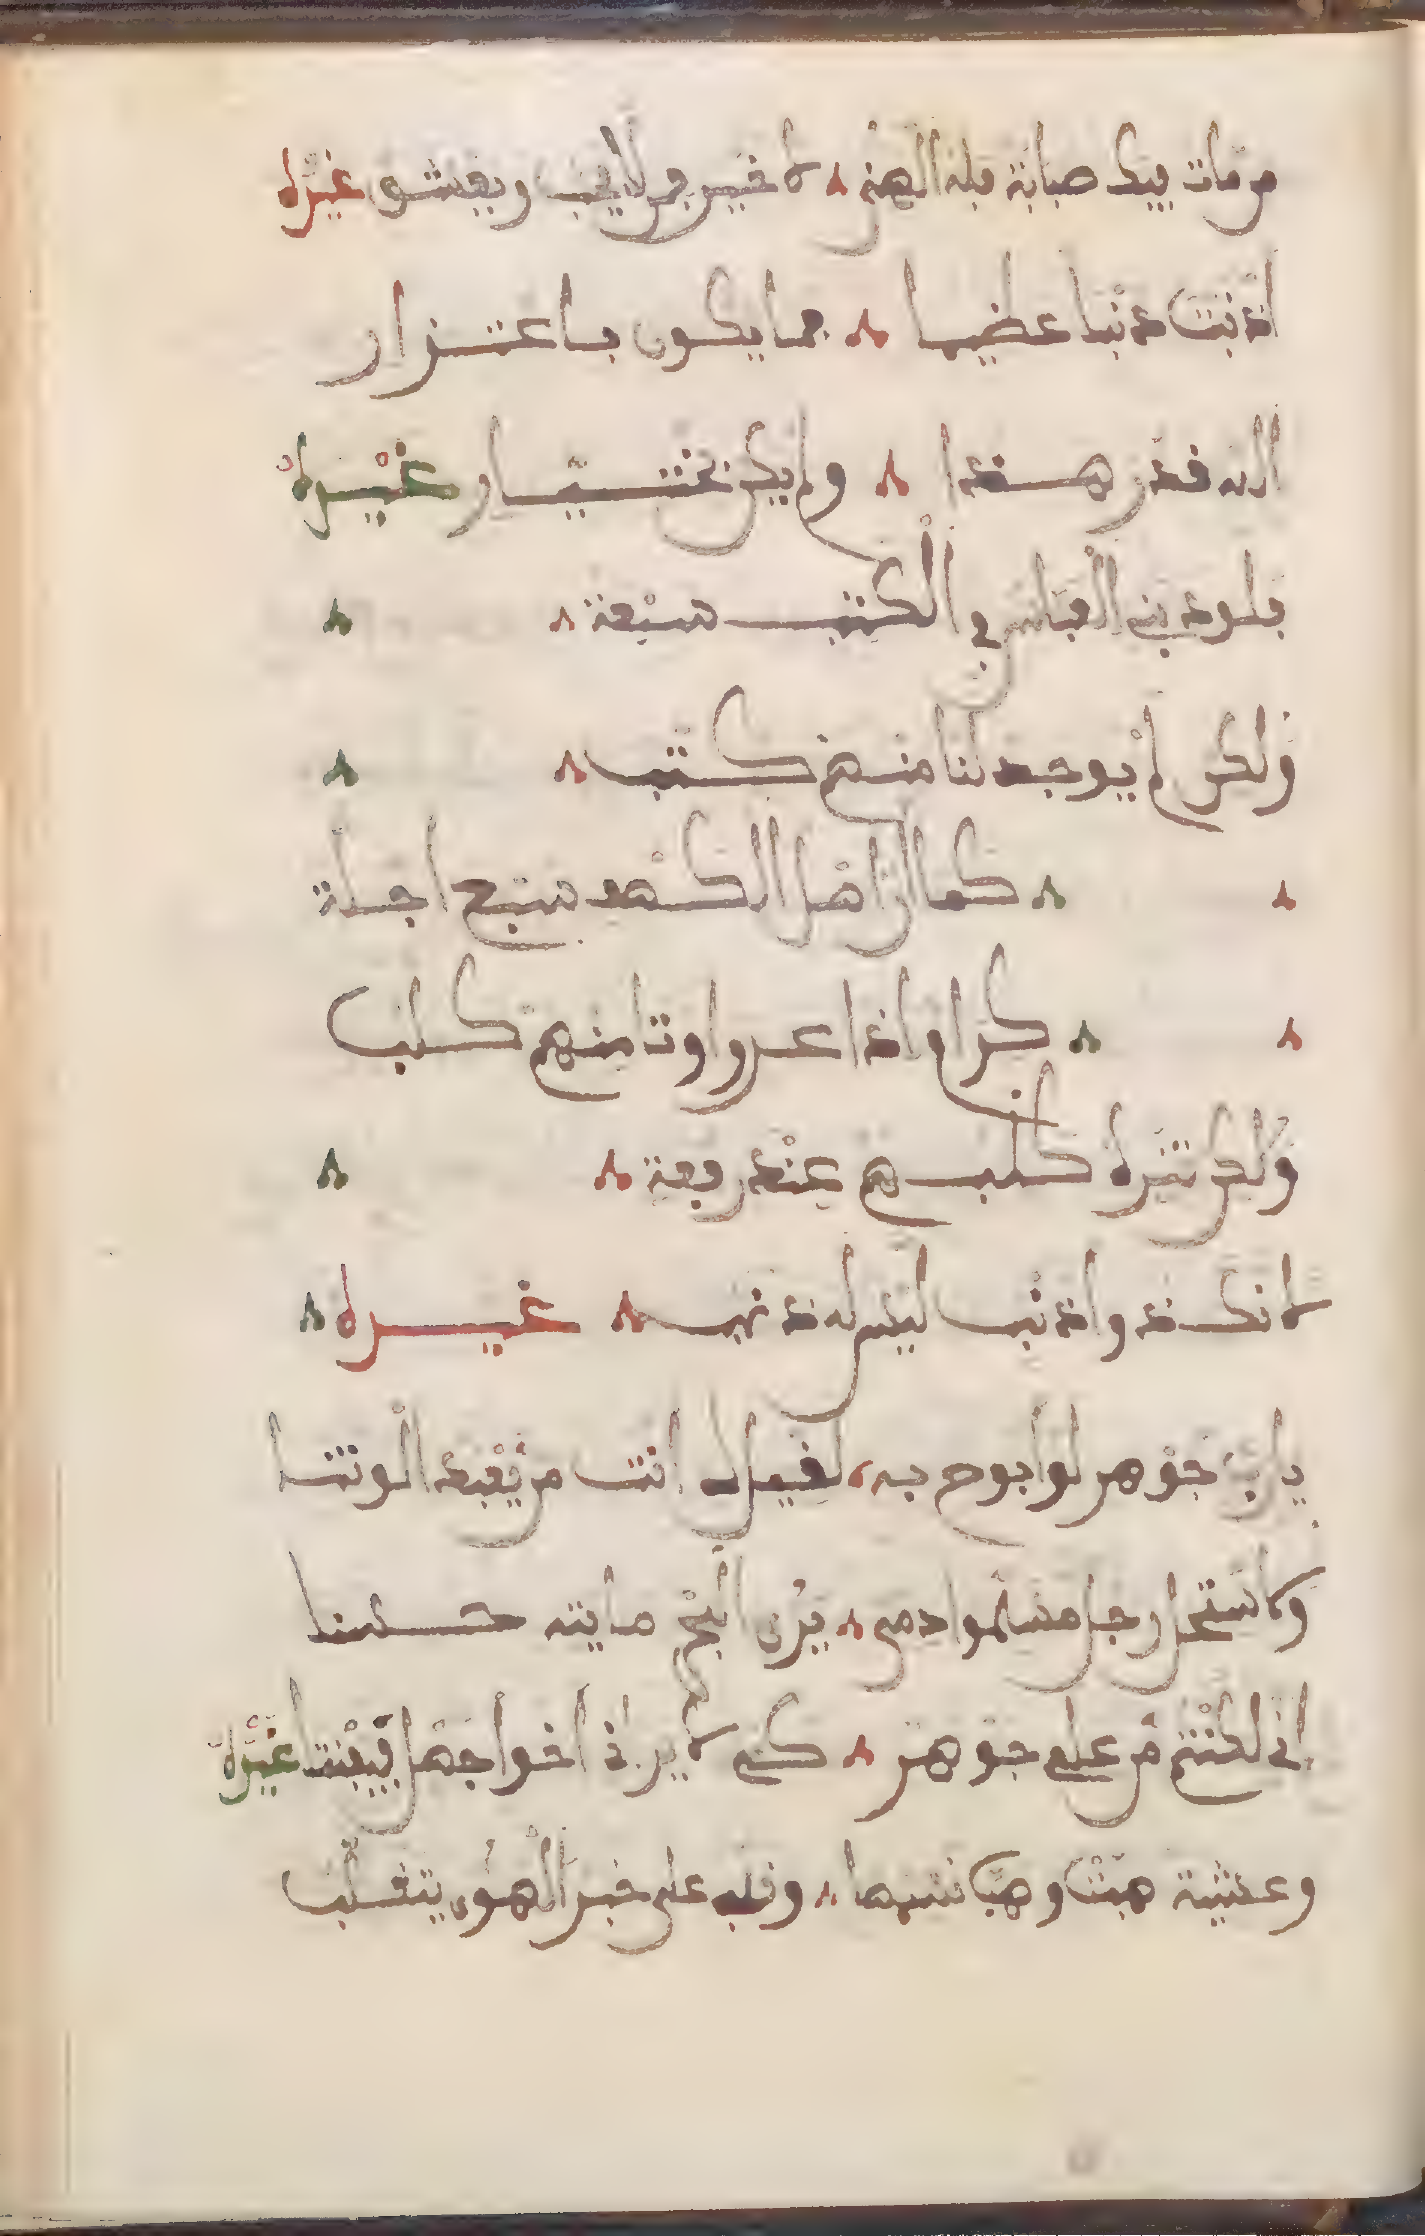 من مات فيك صبابة فله الهنى لا خير فمن لا يحب ويعشق غيره
اذنبت ذنبا عظيما فما يكون باعتزار
الله قدر هذا ولم يكن نختيار غيره
ملوك بني العباس في الكتب سبعة
ولكن لم يوجد لنا منهم كتب
كما ان اهل الكهف سبع اجلة
كرام اذا عدوا وثامنهم كلب
ولكن نره كلبهم عند رفعة
لانك ذو اذنب ليس له ذنب غيره
يا رب جوهر لو ابوح به لقيل ل انت من يعبد الوثنا
ولاستحل رجل مسلموا دمي يرى اقبح ما يته حسنا
اني لكتتم من علمي جوهر كي لا يراني اخوا جهل فيبتنا غيره
وعشية هبت وهبا نسيمها وقلب على خبر الهوى يتقلب